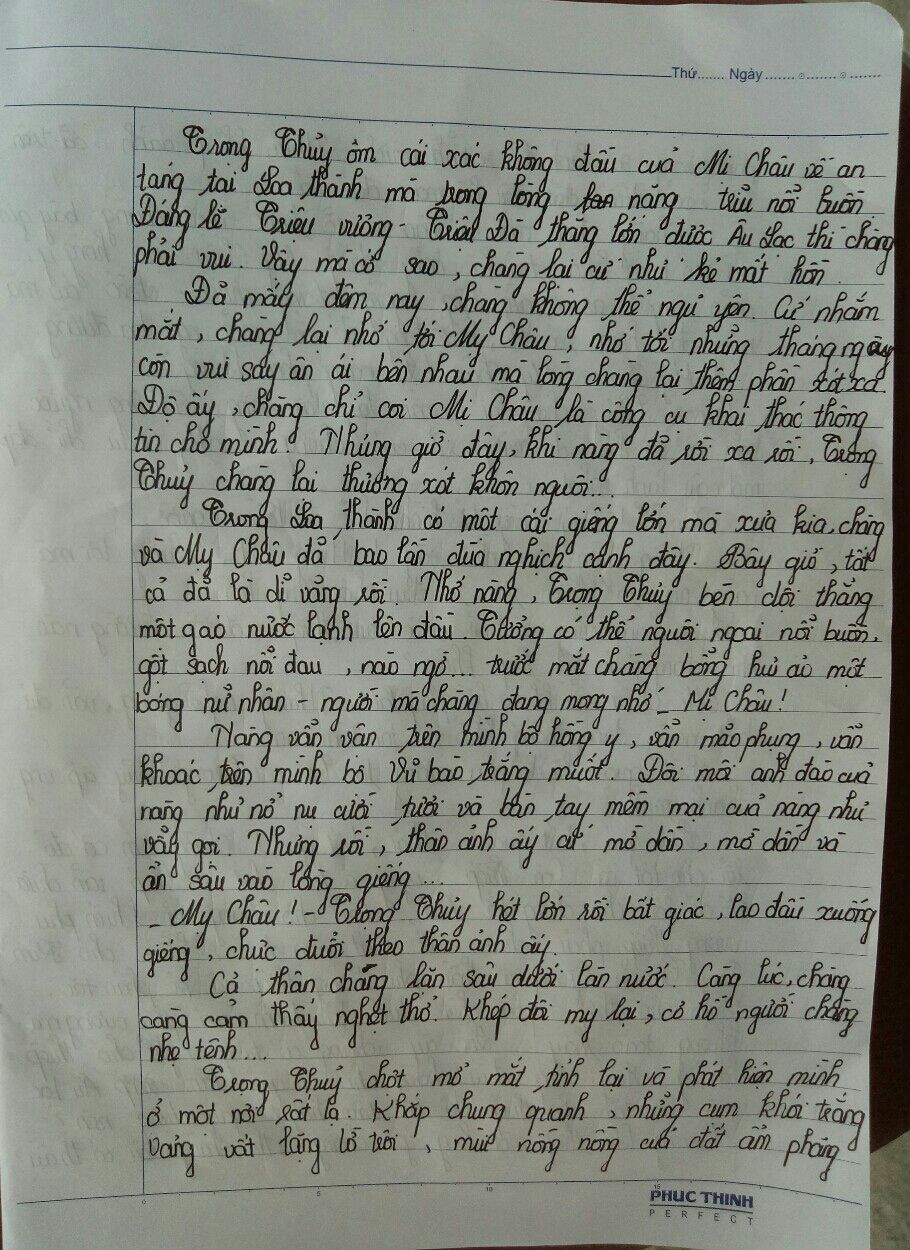 Thứ....... Ngày.......
Trọng Thủy ôm cái xác không đầu của Mi Châu về an
táng tại Loa thành mà trong lòng nặng trĩu nỗi buồn
Đáng lẽ Triệu vương - Triệu Đà thắng lớn được Âu Lạc thì chàng
phải vui. Vậy mà cớ sao, chàng lại cứ như kẻ mất hồn.
Đã mấy đêm nay, chàng không thể ngủ yên. Cứ nhắm
mắt, chàng lại nhớ tới My Châu, nhớ tới những tháng ngày
còn vui say ân ái bên nhau mà lòng chàng lại thêm phần xót xa.
Độ ấy, chàng chỉ coi Mi Châu là công cụ khai thác thông
tin cho mình. Nhưng giờ đây, khi nàng đã rời xa rồi, Trọng
Thuỷ chàng lại thương xót khôn nguôi...
Trong Loa thành có một cái giếng lớn mà xưa kia, chàng
và My Châu đã bao lần đùa nghịch cạnh đây. Bây giờ, tất
cả đã là dĩ vãng rồi. Nhớ nàng, Trọng Thuỷ bèn dội thẳng
một gáo nước lạnh lên đầu. Tưởng có thể nguôi ngoai nỗi buồn,
gột sạch nỗi đau, nào ngờ... trước mắt chàng bỗng hư ảo một
bóng nữ nhân - người mà chàng đang mong nhớ - Mi Châu!
Nàng vẫn vận trên mình bộ hồng y, vẫn mão phụng, vẫn
khoác trên mình bộ vũ bào trắng muốt. Đôi môi anh đào của
nàng như nở nụ cười tươi và bàn tay mềm mại của nàng như
vẫy gọi. Nhưng rồi, thân ảnh ấy cứ mờ dần, mờ dần và
ẩn sâu vào lòng giếng...
- My Châu! - Trọng Thủy hét lớn rồi bất giác, lao đầu xuống
giếng, chực đuổi theo thân ảnh ấy.
Cả thân chàng lặn sâu dưới làn nước. Càng lúc, chàng
càng cảm thấy nghẹt thở. Khép đôi my lại, cơ hồ người chàng
nhẹ tênh...
Trọng Thuỷ chợt mở mắt tỉnh lại và phát hiện mình
ở một nơi rất lạ. Khắp chung quanh, những cụm khói trắng
vảng vất lặng lờ trôi, mùi nồng nồng của đất ẩm phảng
PHUC THINH
PERFECT
0 5 10 15